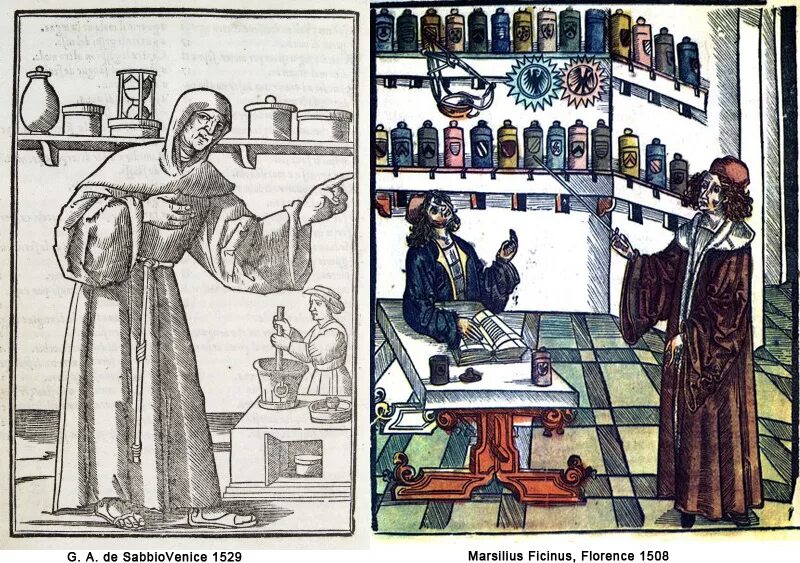 G. A. de SabbioVenice 1529
Marsilius Ficinus, Florence 1508